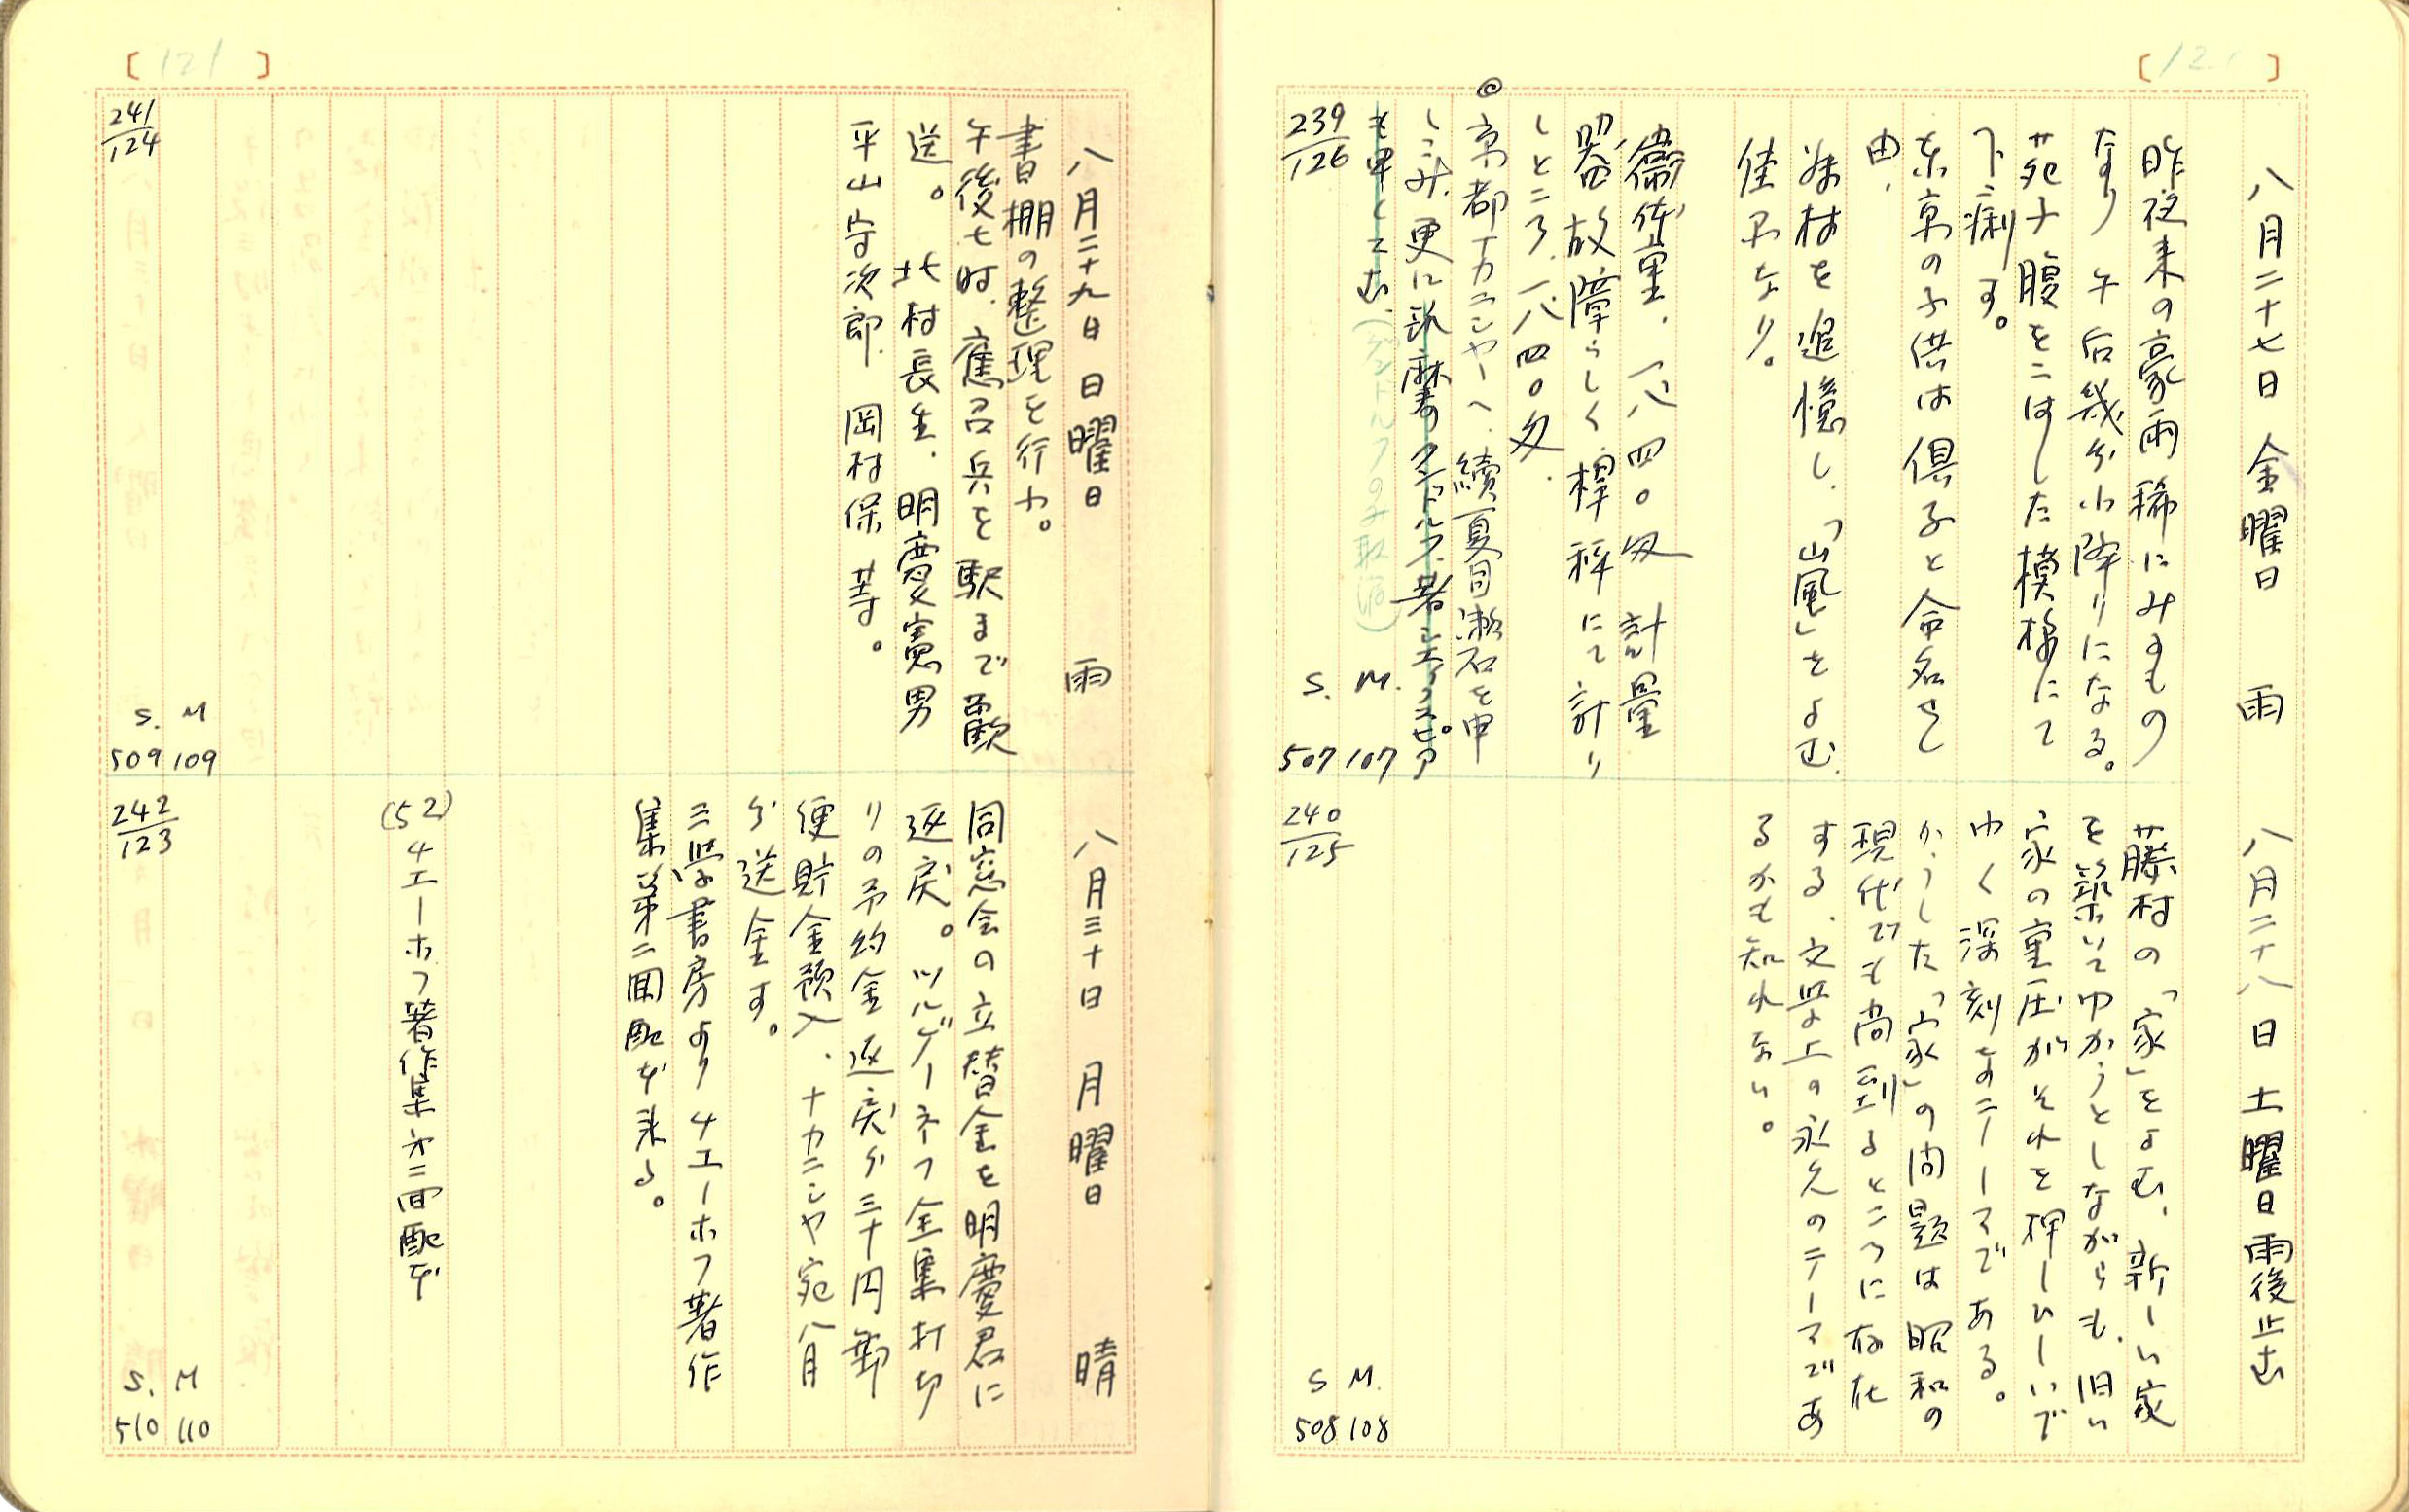 [121]
八月二十七日 金曜日 雨
昨夜来の豪雨稀にみるもの
なり 午后幾分小降りになる。
苑子腹をこはした模様にて
下痢す。
東京の子供は倶子と命名せし
由、
藤村を追憶し、「嵐」をよむ。
佳品なり。
衞体重、一八四〇匁 計量
器故障らしく、桿秤にて計り
しところ、一八四〇匁、
◎京都ナカニシヤーヘ、續夏目漱石を申
しこみ、更に
も申しこむ、
239/126
S. M.
507 107
八月二十八日 土曜日 雨後止む
藤村の「家」をよむ、新しい家
を築いてゆかうとしながらも、旧い
家の重圧がそれを押しひしいで
ゆく深刻なテーマである。
かうした「家」の問題は昭和の
現代でも尚到るところに存在
する、文学上の永久のテーマであ
るかも知れない。
240/125
S M.
508 108
[121]
八月二十九日 日曜日 雨
書棚の整理を行ふ。
午後七時、應召兵を駅まで歡
送。北村長生、明慶憲男
平山守次郎、岡村保 等。
241/124
S. M
509 109
八月三十日 月曜日 晴
同窓会の立替金を明慶君に
返戻。ツルゲーネフ全集打切
りの予約金返戻分三十円郵
便貯金預入、ナカニシヤ宛八月
分送金す。
三学書房よりチエーホフ著作
集第二回配本来る。
(52)チエーホフ著作集第二回配本
242/123
S. M
510 110